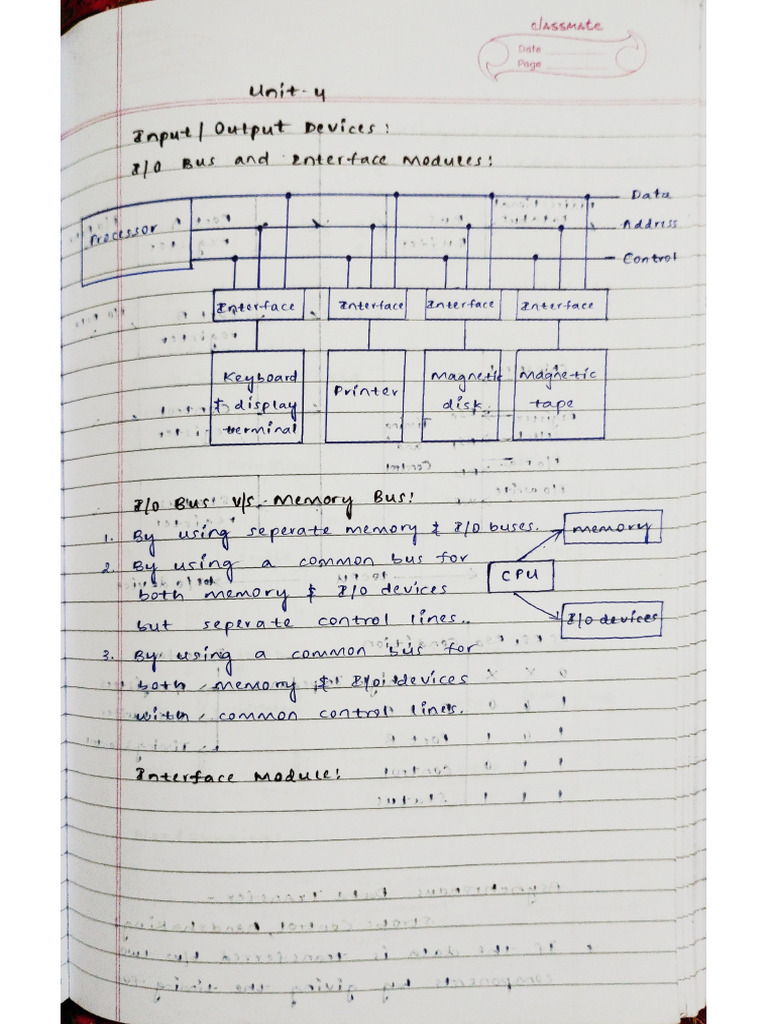 classmate
Date
Page
Unit-4
Input/Output Devices:
I/O Bus and Interface Modules:
Data
Processor
Address
Control
Interface Interface Interface Interface
Keyboard & display terminal
Printer
Magnetic disk
Magnetic tape
I/O Bus v/s. Memory Bus:
1. By using seperate memory & I/O buses.
memory
2. By using a common bus for
CPU
both memory & I/O devices
I/O devices
but seperate control lines..
3. By using a common bus for
both memory & I/O devices
with common control lines.
Interface Module: